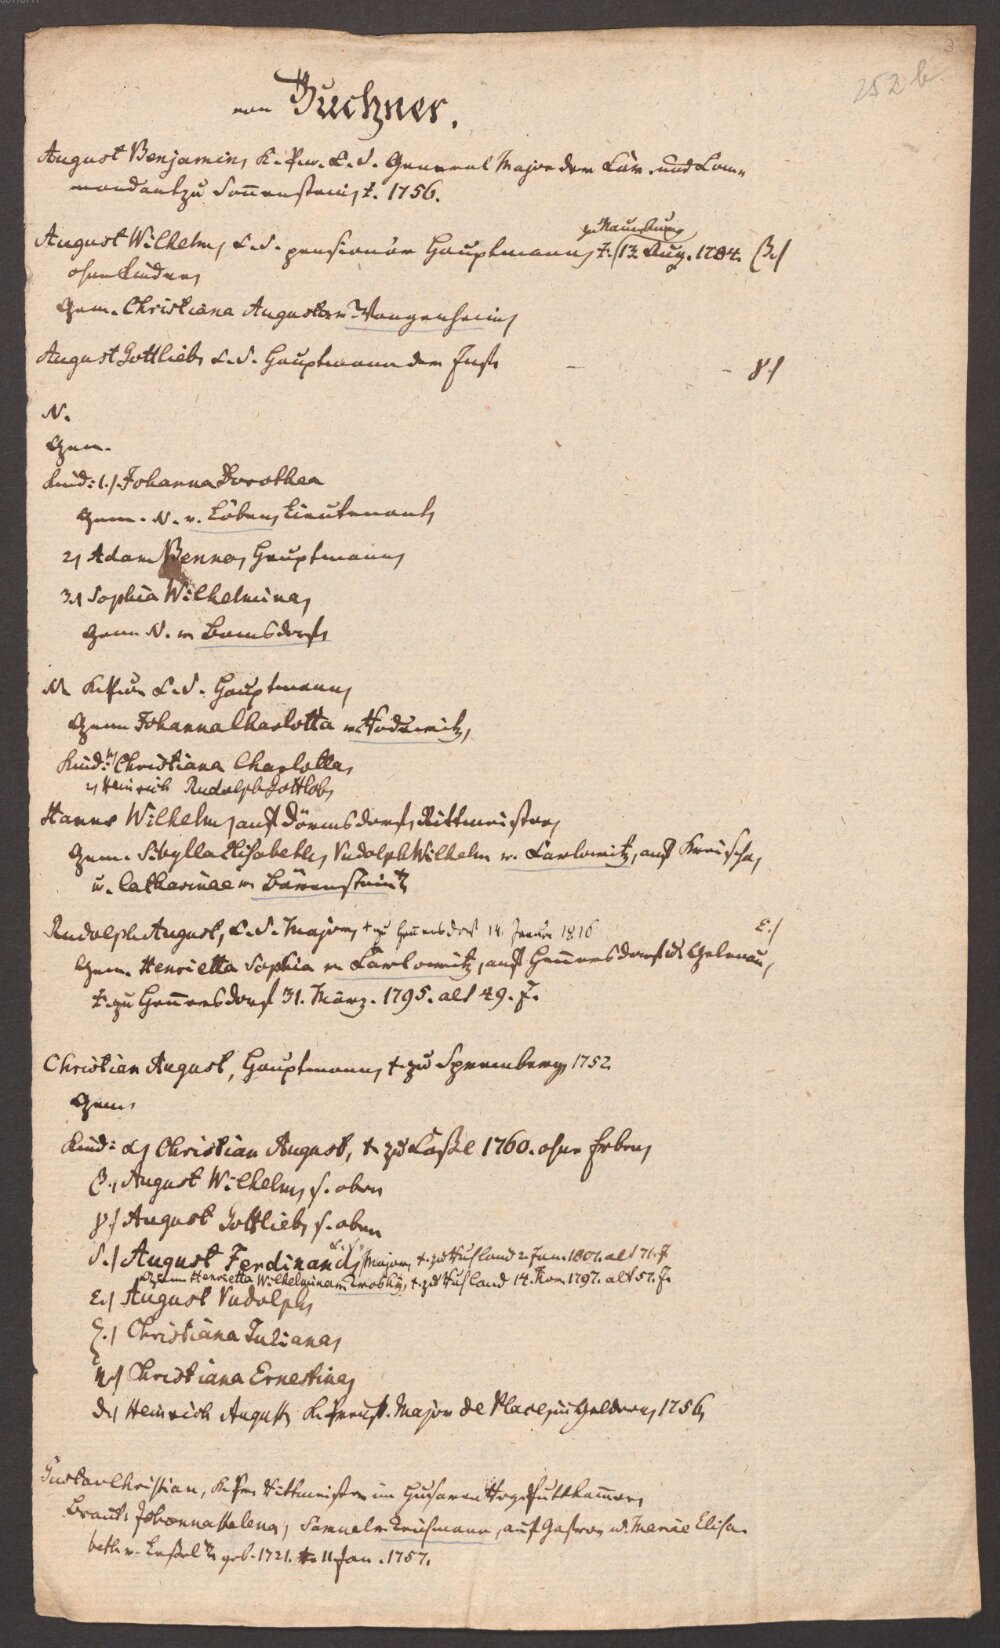 252 b
von Buchner.
August Benjamin, K. Pr. C. S. General Major der Cav. und Com-
mandant zu Sonnenstein, †. 1756.
zu Naumburg
August Wilhelm, C. S. pensionär Hauptmann, †. 13. Aug. 1784. β./
ohne Kinder,
Gem. Christiana Augusta v. Wangenheim,
August Gottlieb, C. S. Hauptmann der Inft. γ./
N.
Gem.
Kind: 1./ Johanna Dorothea
Gem. N. v. Löben, Lieutenant,
2, Adam Benno, Hauptmann,
3./ Sophia Wilhelmina,
Gem. N. v. Bomsdorf,
N. C. S. Hauptmann,
Gem. Johanna Charlotta v.
Kind: 1, Christiana Charlotta,
2, Heinrich Rudolph Gottlob,
Hanns Wilhelm, auf Dörmsdorf, Rittmeister,
Gem. Sibylla Elisabeth, Rudolph Wilhelm v. Carlowitz, auf Kreischa,
u. Catharinae v. Bärenstein
Rudolph August, C. S. Major, † zu Hennersdorf 14. Januar 1816 ε./
Gem. Henrietta Sophia v. Carlowitz, auf Hennersdorf u. Gelenau,
†. zu Hennersdorf 31. März. 1795. alt 49. J.
Christian August, Hauptmann, † zu Spremberg, 1752.
Gem.
Kind: α, Christian August, † zu 1760. ohne Erben,
β., August Wilhelm, s. oben
γ./ August Gottlieb, s. oben
δ./ August Ferdinand, C. S. Major, †. zu Ruhland 2. Jun. 1807. alt 71. J.
Gem. Henrietta Wilhelmina v. †. zu Ruhland 14. 1797. alt 57. J.
ε./ August Rudolph,
ζ./ Christiana Juliana,
η./ Christiana Ernestina,
Heinrich August, K. Preuß. Major de Place, in Geldern, 1756,
Gustav Christian, K. Pr. Rittmeister im Husaren Rgt Puttkammer,
Braut: Johanna Helena, Samuel v. auf u. Mariae Elisa-
beth v. geb. 1721. †. 11 Jan. 1757.